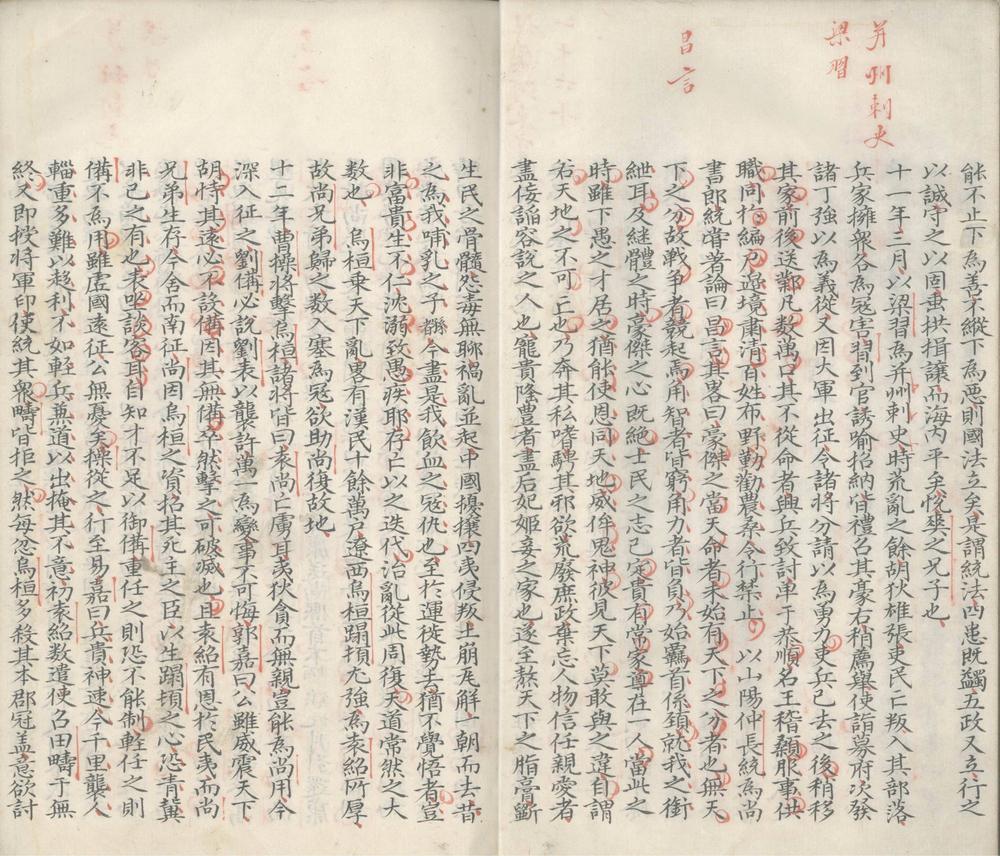 并州刺史
梁習
昌言
能不止下為善不縱下為惡則國法立矣是謂統法四患既蠲五政又立行之
以誠守之以固垂拱揖讓而海內平矣悅爽之兄子也
十一年三月以梁習為并州刺史時荒亂之餘胡狄雄張吏民亡叛入其部落
兵家擁衆各為寇害習到官誘喻招納皆禮召其豪右稍薦舉使詣幕府次發
諸丁強以為義從又因大軍出征令諸將分請以為勇力吏兵已去之後稍移
其家前後送鄴凡數萬口其不從命者興兵致討單于恭順名王稽顙服事供
職同於編戶邊境肅清百姓布野勤勸農桑令行禁止以山陽仲長統為尚
書郎統嘗著論曰昌言其畧曰豪傑之當天命者未始有天下之分者也無天
下之分故戰爭者競起焉角智者皆窮角力者皆負乃始羈首係頸就我之銜
紲耳及繼體之時豪傑之心既絶士民之志已定貴有常家尊在一人當此之
時雖下愚之才居之猶能使恩同天地威侔鬼神彼見天下莫敢與之違自謂
若天地之不可亡也乃奔其私嗜騁其邪欲荒廢庶政棄忘人物信任親愛者
盡佞諂容說之人也寵貴隆豊者盡后妃姬妾之家也遂至熬天下之脂膏斷
生民之骨髓怨毒無聊禍亂並起中國擾攘四夷侵叛土崩瓦解一朝而去昔
之為我哺乳之子孫今盡是我飲血之寇仇也至於運徙勢去猶不覺悟者豈
非富貴生不仁沈溺致愚疾耶存亡以之迭代治亂從此周復天道常然之大
數也烏桓乗天下亂畧有漢民十餘萬戶遼西烏桓蹋頓尤強為袁紹所厚
故尚兄弟歸之數入塞為寇欲助尚復故地
十二年曹操將擊烏桓諸將皆曰袁尚亡虜耳夷狄貪而無親豈能為尚用今
深入征之劉備必說劉表以襲許萬一為變事不可悔郭嘉曰公雖威震天下
胡恃其遠必不設備因其無備卒然擊之可破滅也且袁紹有恩於民夷而尚
兄弟生存今舍而南征尚因烏桓之資招其死主之臣以生蹋頓之心恐青冀
非己之有也表坐談客耳自知才不足以御備重任之則恐不能制輕任之則
備不為用雖虛國遠征公無憂矣操從之行至易嘉曰兵貴神速今千里襲人
輜重多難以趍利不如輕兵兼道以出掩其不意初袁紹數遣使召田疇于無
終又即授將軍印使統其衆疇皆拒之然每忿烏桓多殺其本郡冠盖意欲討